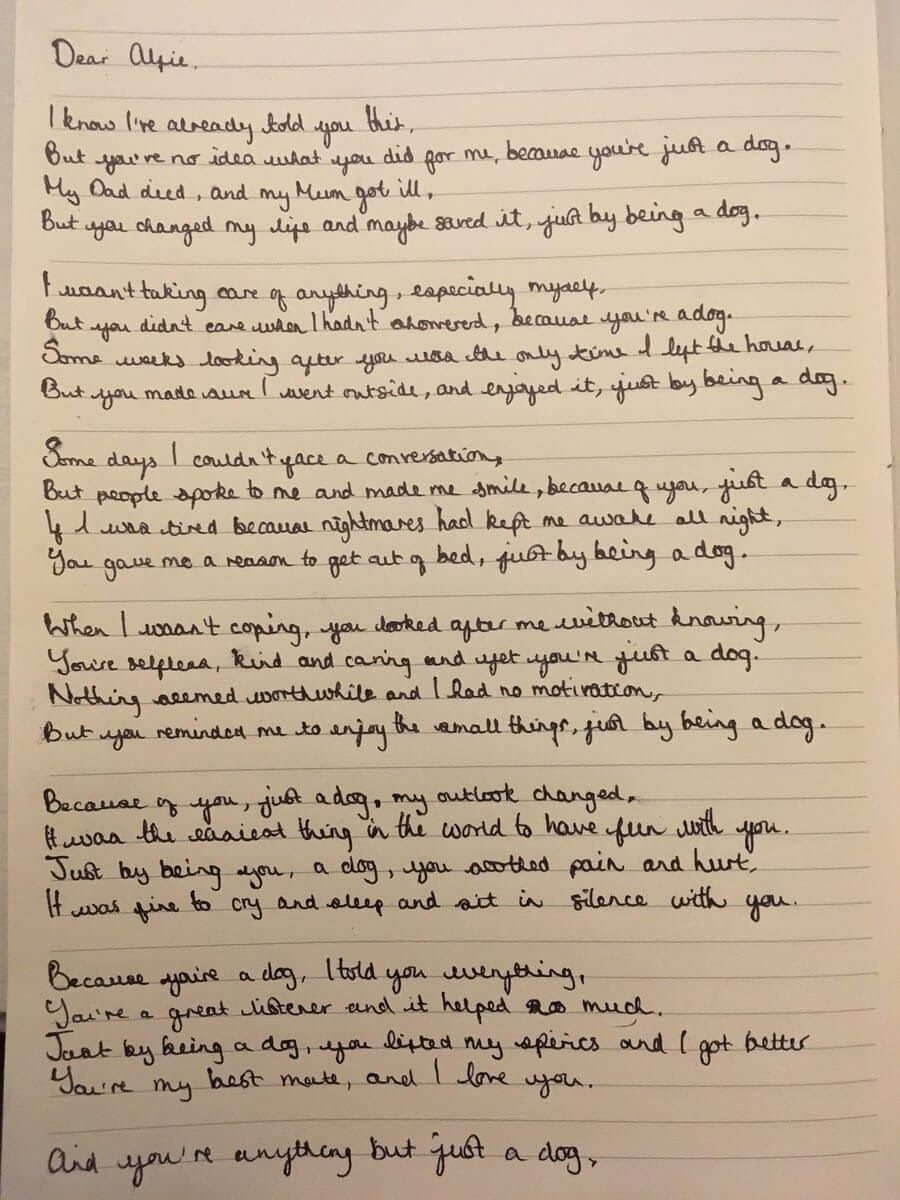 Dear Alfie,
I know I've already told you this,
But you've no idea what you did for me, because you're just a dog.
My Dad died, and my Mum got ill,
But you changed my life and maybe saved it, just by being a dog.
I wasn't taking care of anything, especially myself,
But you didn't care when I hadn't showered, because you're a dog.
Some weeks looking after you was the only time I left the house,
But you made sure I went outside, and enjoyed it, just by being a dog.
Some days I couldn't face a conversation,
But people spoke to me and made me smile, because of you, just a dog.
If I was tired because nightmares had kept me awake all night,
You gave me a reason to get out of bed, just by being a dog.
When I wasn't coping, you looked after me without knowing,
You're selfless, kind and caring and yet you're just a dog.
Nothing seemed worthwhile and I had no motivation,
But you reminded me to enjoy the small things, just by being a dog.
Because of you, just a dog, my outlook changed,
It was the easiest thing in the world to have fun with you.
Just by being you, a dog, you soothed pain and hurt,
It was fine to cry and sleep and sit in silence with you.
Because you're a dog, I told you everything,
You're a great listener and it helped so much.
Just by being a dog, you lifted my spirits and I got better
You're my best mate, and I love you.
And you're anything but just a dog,